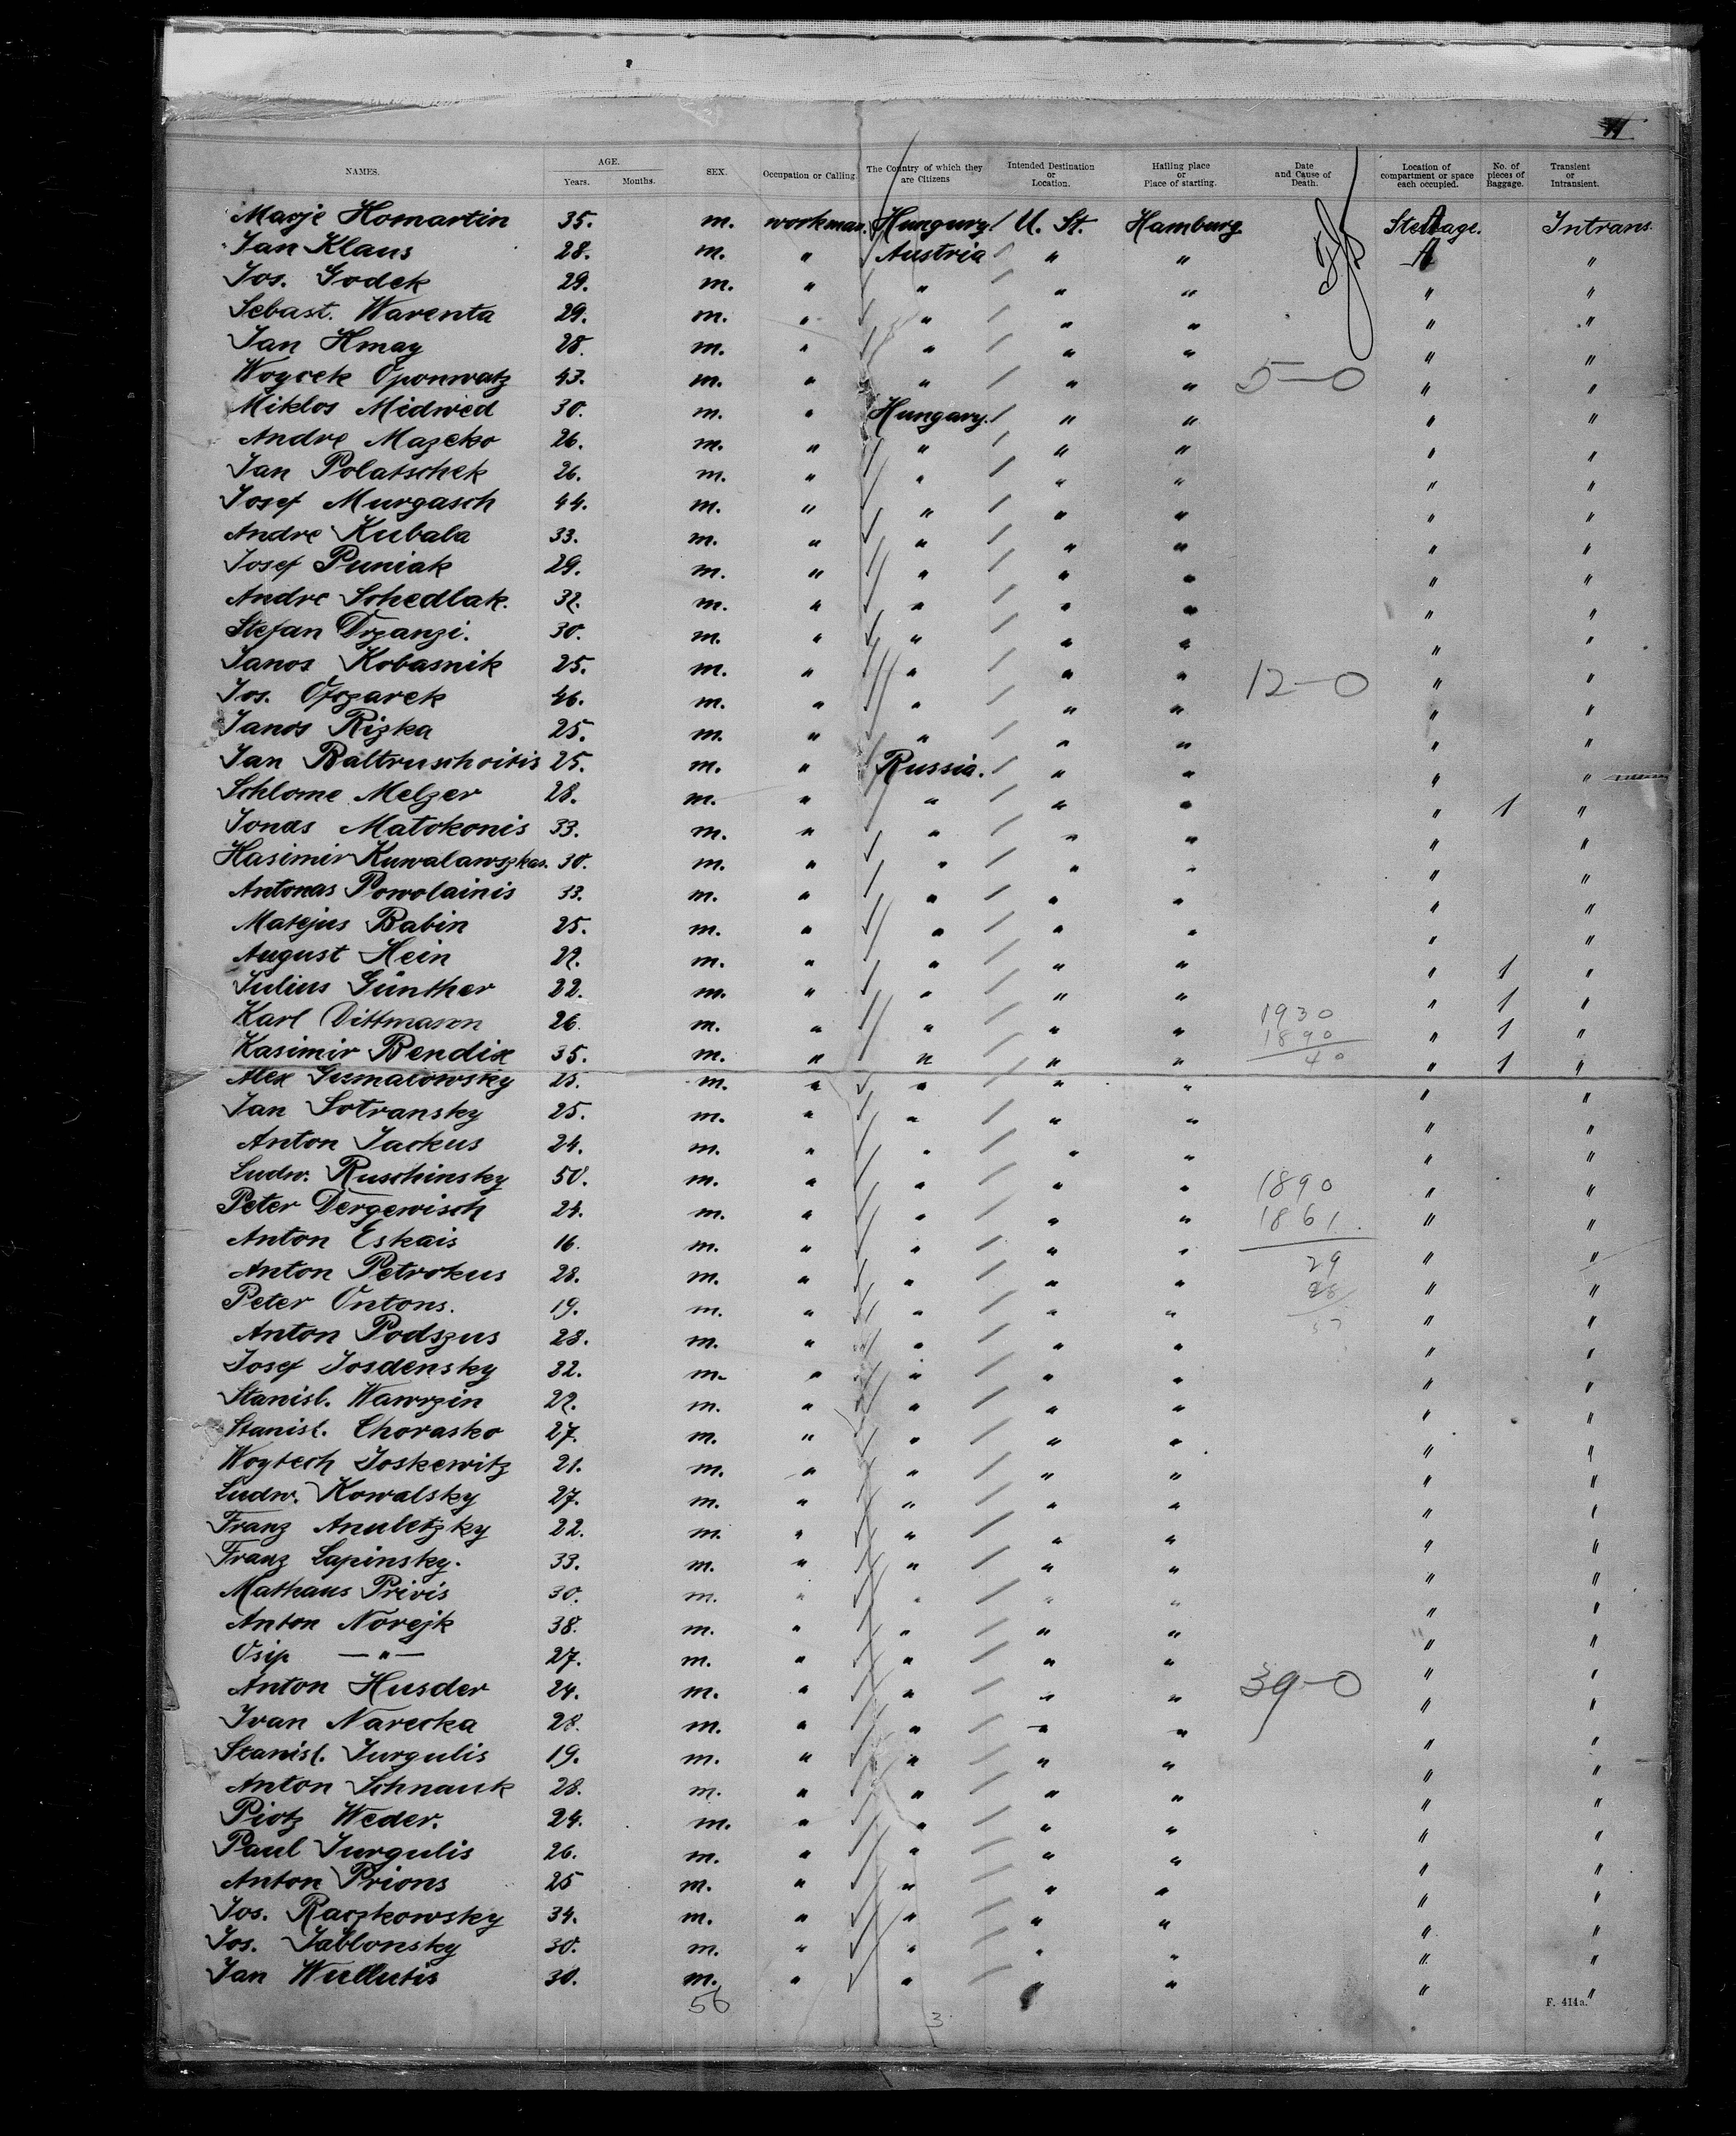 NAMES. AGE. Years. Months. SEX. Occupation or Calling The Country of which they are Citizens Intended Destination or Location. Hailing place or Place of starting. Date and Cause of Death. Location of compartment or space each occupied. No. of pieces of Baggage. Transient or Intransient.
Marje Homartin 35. m. workman. Hungary. U. St. Hamburg. Steerage. Intrans.
Jan Klaus 28. m. " Austria " " "
Jos. Godek 29. m. " " " " " "
Sebast. Warenta 29. m. " " " " " "
Jan Hmay 28. m. " " " " " "
Woycek Oponwatz 43. m. " " " " 5-0 " "
Miklos Midwed 30. m. " Hungary. " " " "
Andre Mazeko 26. m. " " " " " "
Jan Polatschek 26. m. " " " " " "
Josef Murgasch 44. m. " " " " " "
Andre Kubala 33. m. " " " " " "
Josef Puniak 29. m. " " " " " "
Andre Schedlak. 32. m. " " " " " "
Stefan Drzanzi. 30. m. " " " " " "
Janos Kobasnik 25. m. " " " " 12-0 " "
Jos. 46. m. " " " " " "
Janos Rizka 25. m. " " " " " "
Jan Baltruschoitis 25. m. " Russia. " " " "
Schlome Melzer 28. m. " " " " " 1 "
Jonas Matokonis 33. m. " " " " " "
Kasimir Kuwalawszkas. 30. m. " " " " " "
Antonas Powolainis 33. m. " " " " " "
Matejus Babin 25. m. " " " " " "
August Hein 22. m. " " " " " 1 "
Julius Günther 22. m. " " " " " 1 "
Karl Dittmann 26. m. " " " " 1930 1890 " 1 "
Kasimir Bendix 35. m. " " " " 40 " 1 "
Alex Gumalowsky 25. m. " " " " " "
Jan Sotransky 25. m. " " " " " "
Anton Jackus 24. m. " " " " " "
Ludw. Ruschinsky 50. m. " " " " 1890 " "
Peter Dergewisch 24. m. " " " " 1861. " "
Anton Eskais 16. m. " " " " 29 " "
Anton Petrokus 28. m. " " " " " "
Peter Ontons. 19. m. " " " " " "
Anton Podszus 28. m. " " " " " "
Josef Josdensky 22. m. " " " " " "
Stanisl. Wawrzin 22. m. " " " " " "
Stanisl. Chorasko 27. m. " " " " " "
Woytech Joskewitz 21. m. " " " " " "
Ludw. Kowalsky 27. m. " " " " " "
Franz Anuletzky 22. m. " " " " " "
Franz Lapinsky. 33. m. " " " " " "
Mathaus Privis 30. m. " " " " " "
Anton Norejk 38. m. " " " " " "
Osip —"— 27. m. " " " " " "
Anton Husder 24. m. " " " " 39-0 " "
Ivan Narecka 28. m. " " " " " "
Stanisl. Jurgulis 19. m. " " " " " "
Anton Schnauk 28. m. " " " " " "
Piotz Weder. 24. m. " " " " " "
Paul Jurgulis 26. m. " " " " " "
Anton Prions 25 m. " " " " " "
Jos. Raczkowsky 34. m. " " " " " "
Jos. Jablonsky 30. m. " " " " " "
Jan Wullutis 30. m. " " " " " "
56
3
F. 414a.